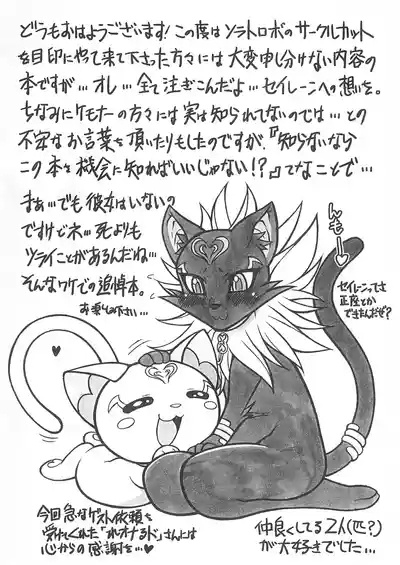 どうもおはようございます！この度はソラトロボのサークルカット
を目印にやって来て下さった方々には大変申し分けない内容の
本ですが…オレ…全て注ぎこんだよ…セイレーンへの想いを。
ちなみにケモナーの方々には実は知られてないのでは…との
不安なお言葉を頂いたりもしたのですが、『知らないなら
この本を機会に知ればいいじゃない！？』てなことで…
まぁ…でも彼女はいないの
ですけどネ…死よりも
ツライことがあるんだね…
そんなワケでの追悼本。
お楽しみ下さい…
んもー
セイレーンってさ
正座とか
できたんだぜ？
今回急なゲスト依頼を
受けてくれた「れオナるド」さんには
心からの感謝を…♥
仲良くしてる2人(匹？)
が大好きでした…